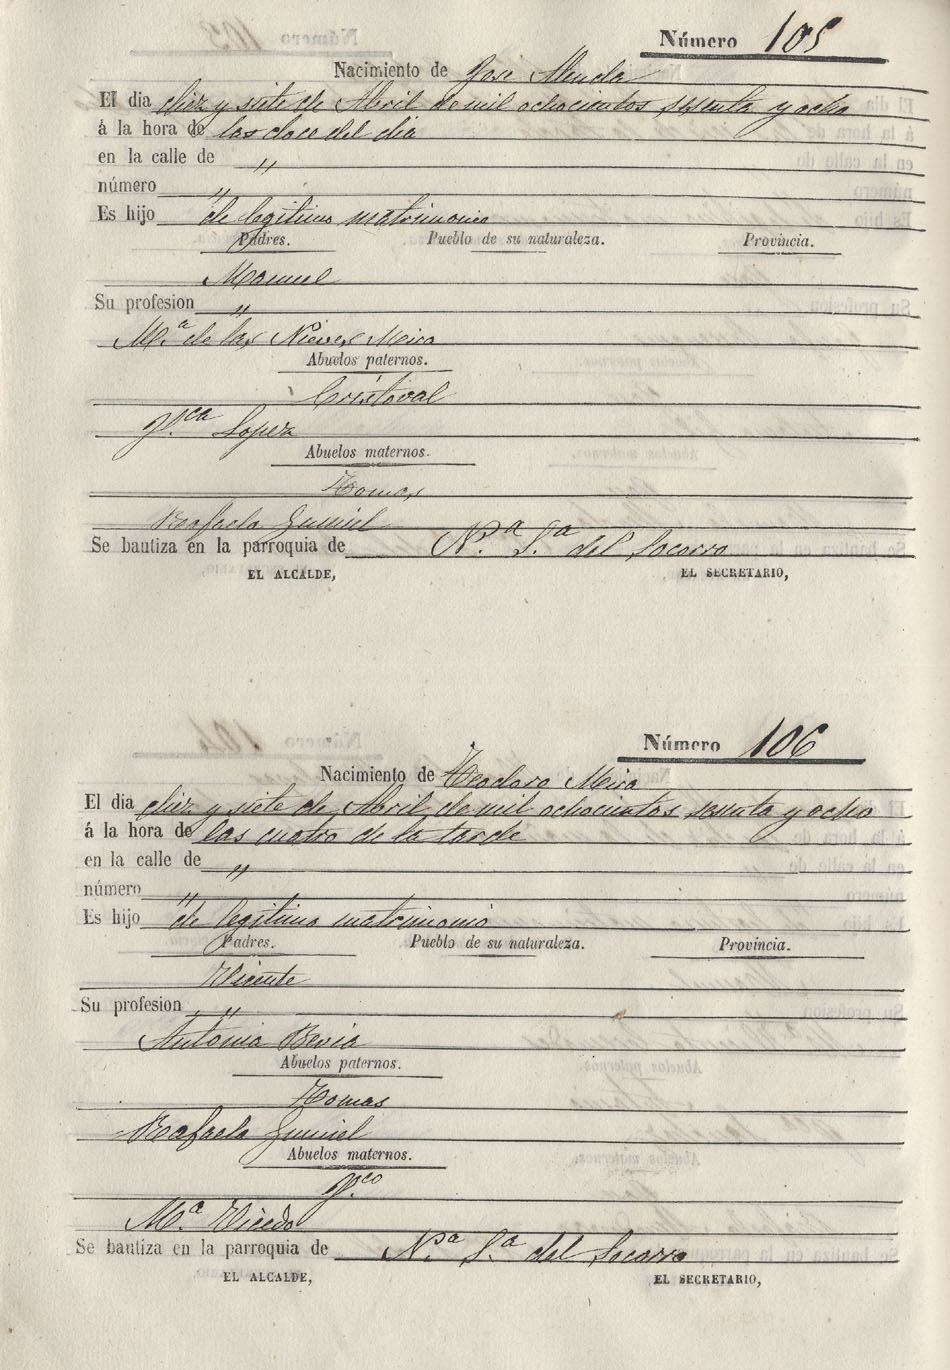 Número 105
Nacimiento de Jose Alenda
El dia diez y siete de Abril de mil ochocientos sesenta y ocho
á la hora de las doce del dia
en la calle de "
número "
Es hijo de legitimo matrimonio
Padres. Pueblo de su naturaleza. Provincia.
Manuel
Su profesion "
M.ª de las Nieves Mira
Abuelos paternos.
Cristoval
F.ca Lopez
Abuelos maternos.
Tomas
Rafaela Gumiel
Se bautiza en la parroquia de N.ª S.ª del Socorro
EL ALCALDE, EL SECRETARIO,
Número 106
Nacimiento de Teodoro Mira
El dia diez y siete de Abril de mil ochocientos sesenta y ocho
á la hora de las cuatro de la tarde
en la calle de "
número "
Es hijo de legitimo matrimonio
Padres. Pueblo de su naturaleza. Provincia.
Vicente
Su profesion "
Antonia Bevia
Abuelos paternos.
Tomas
Rafaela Gumiel
Abuelos maternos.
F.co
Mª Vicedo
Se bautiza en la parroquia de N.ª S.ª del Socorro
EL ALCALDE, EL SECRETARIO,